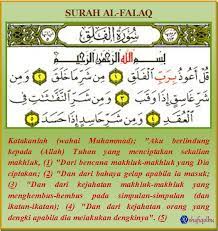 SURAH AL-FALAQ
سُورَةُ الفَلَقِ
بِسْمِ اللَّهِ الرَّحْمَٰنِ الرَّحِيمِ
قُلْ أَعُوذُ بِرَبِّ الْفَلَقِ ۝١ مِن شَرِّ مَا خَلَقَ ۝٢ وَمِن
شَرِّ غَاسِقٍ إِذَا وَقَبَ ۝٣ وَمِن شَرِّ النَّفَّـٰثَـٰتِ فِى
الْعُقَدِ ۝٤ وَمِن شَرِّ حَاسِدٍ إِذَا حَسَدَ ۝٥
Katakanlah (wahai Muhammad); "Aku berlindung
kepada (Allah) Tuhan yang menciptakan sekalian
makhluk, (1) "Dari bencana makhluk-makhluk yang Dia
ciptakan; (2) "Dan dari bahaya gelap apabila ia masuk;
(3) "Dan dari kejahatan makhluk-makhluk yang
menghembus-hembus pada simpulan-simpulan (dan
ikatan-ikatan); (4) "Dan dari kejahatan orang yang
dengki apabila dia melakukan dengkinya". (5)